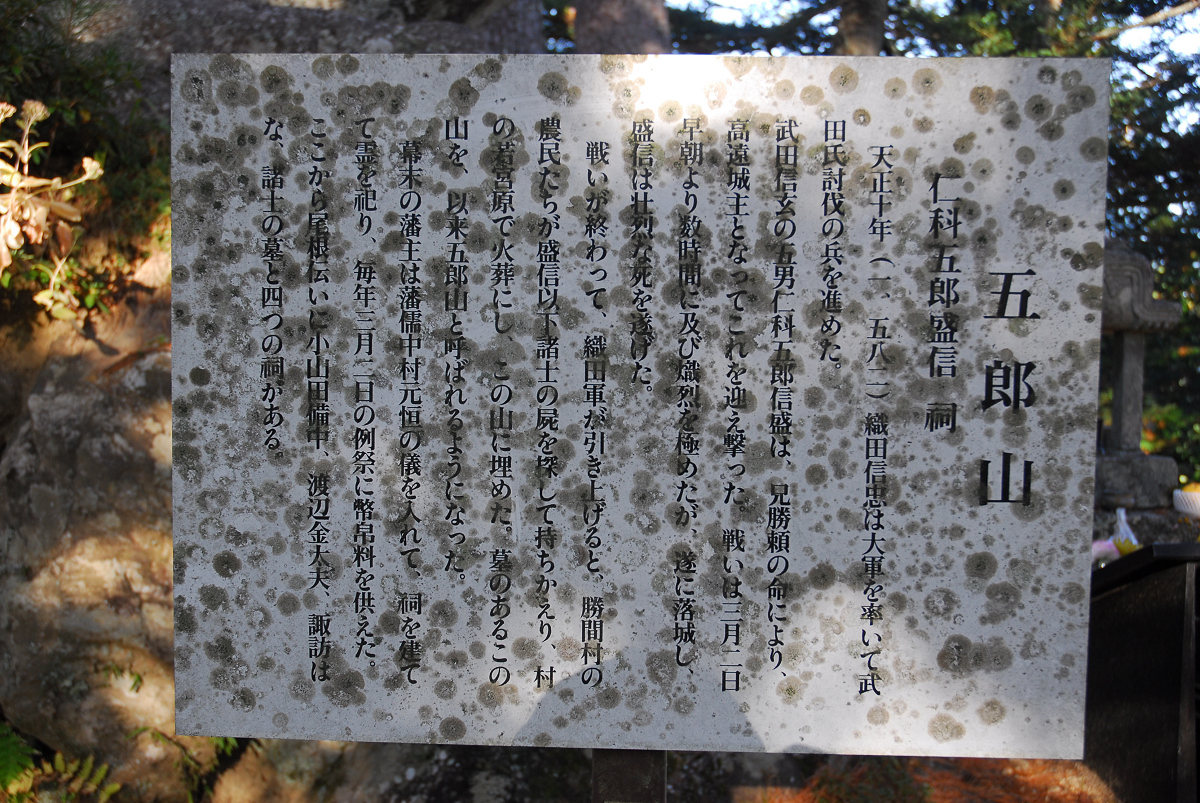 五郎山
仁科五郎盛信 祠
天正十年（一、五八二）織田信忠は大軍を率いて武
田氏討伐の兵を進めた。
武田信玄の五男仁科五郎信盛は、兄勝頼の命により、
高遠城主となってこれを迎え撃った。戦いは三月二日
早朝より数時間に及び熾烈を極めたが、遂に落城し、
盛信は壮烈な死を遂げた。
戦いが終わって、織田軍が引き上げると、勝間村の
農民たちが盛信以下諸士の屍を探して持ちかえり、村
の若宮原で火葬にし、この山に埋めた。墓のあるこの
山を、以来五郎山と呼ばれるようになった。
幕末の藩主は藩儒中村元恒の儀を入れて、祠を建て
て霊を祀り、毎年三月二日の例祭に幣帛料を供えた。
ここから尾根伝いに小山田備中、渡辺金太夫、諏訪は
な、諸士の墓と四つの祠がある。